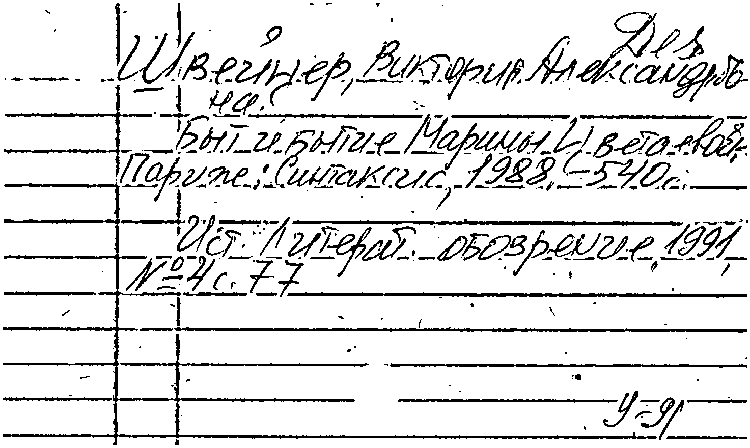 Дез
Швейцер, Виктория Александров-
на.
Быт и бытие Марины Цветаевой.
Париж: Синтаксис, 1988. – 540 с.
Ист. Литерат. обозрение, 1991,
№ 4 с. 77
У-91